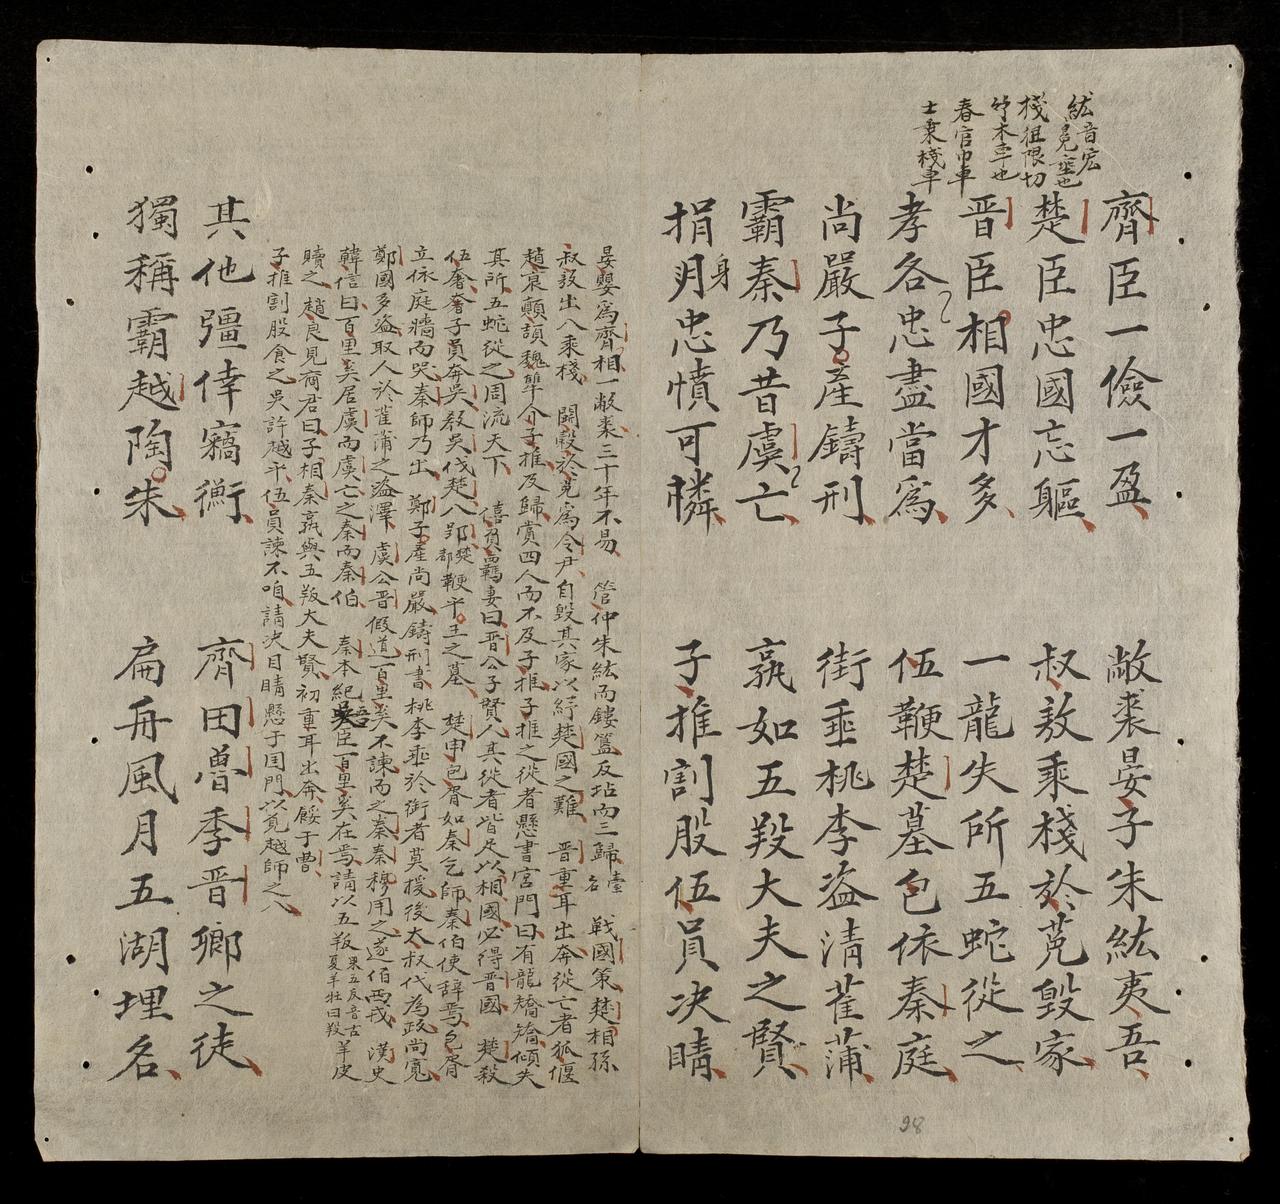 紘音宏
冕塞也
棧徂限切
竹木車也
春官巾車
士乗棧車
齊臣一儉一盈 敝裘晏子朱紘夷吾
楚臣忠國忘軀 叔敖乗棧於菟毀家
晋臣相國才多 一龍失所五蛇從之
孝各忠盡當爲 伍鞭楚墓包依秦庭
尚嚴子産鑄刑 街垂桃李盗清萑蒲
霸秦乃昔虞亡 孰如五羖大夫之賢
捐躬忠憤可憐 子推割股伍員决睛
身
晏嬰爲齊相一敝裘三十年不易 管仲朱紘而鏤簋反坫而三歸臺名 戦國策楚相孫
叔敖出入乘棧 鬪穀於菟爲令尹自毀其家以紓楚國之難 晋重耳出奔從亡者狐偃
趙衰顛頡魏犨介子推及歸賞四人而不及子推子推之從者懸書宮門曰有龍矯矯傾失
其所五蛇從之周流天下 僖負羈妻曰晋公子賢人其從者皆足以相國必得晋國 楚殺
伍奢奢子員奔吳教吳伐楚入郢楚都鞭平王之墓 楚申包胥如秦乞師秦伯使辭焉包胥
立依庭牆而哭秦師乃出 鄭子產尚嚴鑄刑書 桃李垂於街者莫援後太叔代為政尚寬
鄭國多盗取人於萑蒲之盗澤 虞公晋假道百里奚不諫而之秦秦穆用之遂伯西戎 漢史
韓信曰百里奚居虞而虞亡之秦而秦伯 秦本紀吾臣百里奚在焉請以五羖果五反音古夏羊牡曰羖羊皮
贖之 趙良見商君曰子相秦孰與五羖大夫賢初重耳出奔餒于曹
子推割股食之吳許越平伍員諫不咱請决目睛懸于国門以覓越師之入
其他彊倖竊衡 齊田曽季晋卿之徒
獨稱霸越陶朱 扁舟風月五湖埋名
98